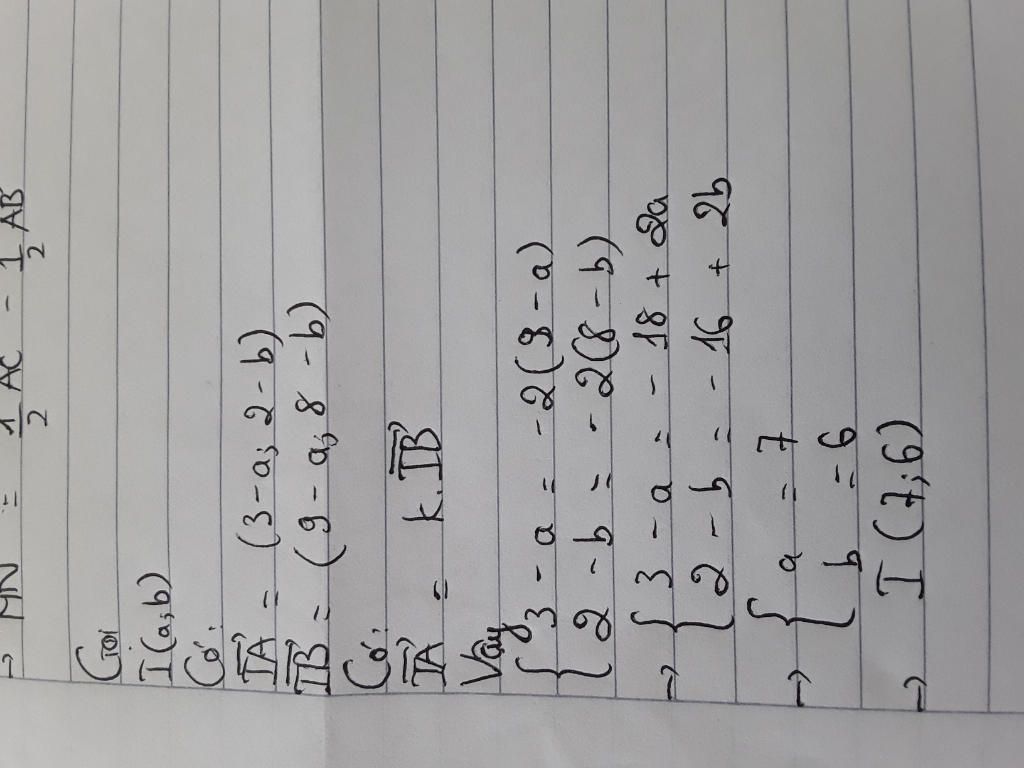 → MN = 1/2 AC - 1/2 AB
Gọi
I(a;b)
Có:
IA = (3-a; 2-b)
IB = (9-a; 8-b)
Có:
IA = k.IB
Vậy
{ 3 - a = -2(9-a)
{ 2 - b = -2(8-b)
→ { 3 - a = -18 + 2a
{ 2 - b = -16 + 2b
→ { a = 7
{ b = 6
→ I (7;6)